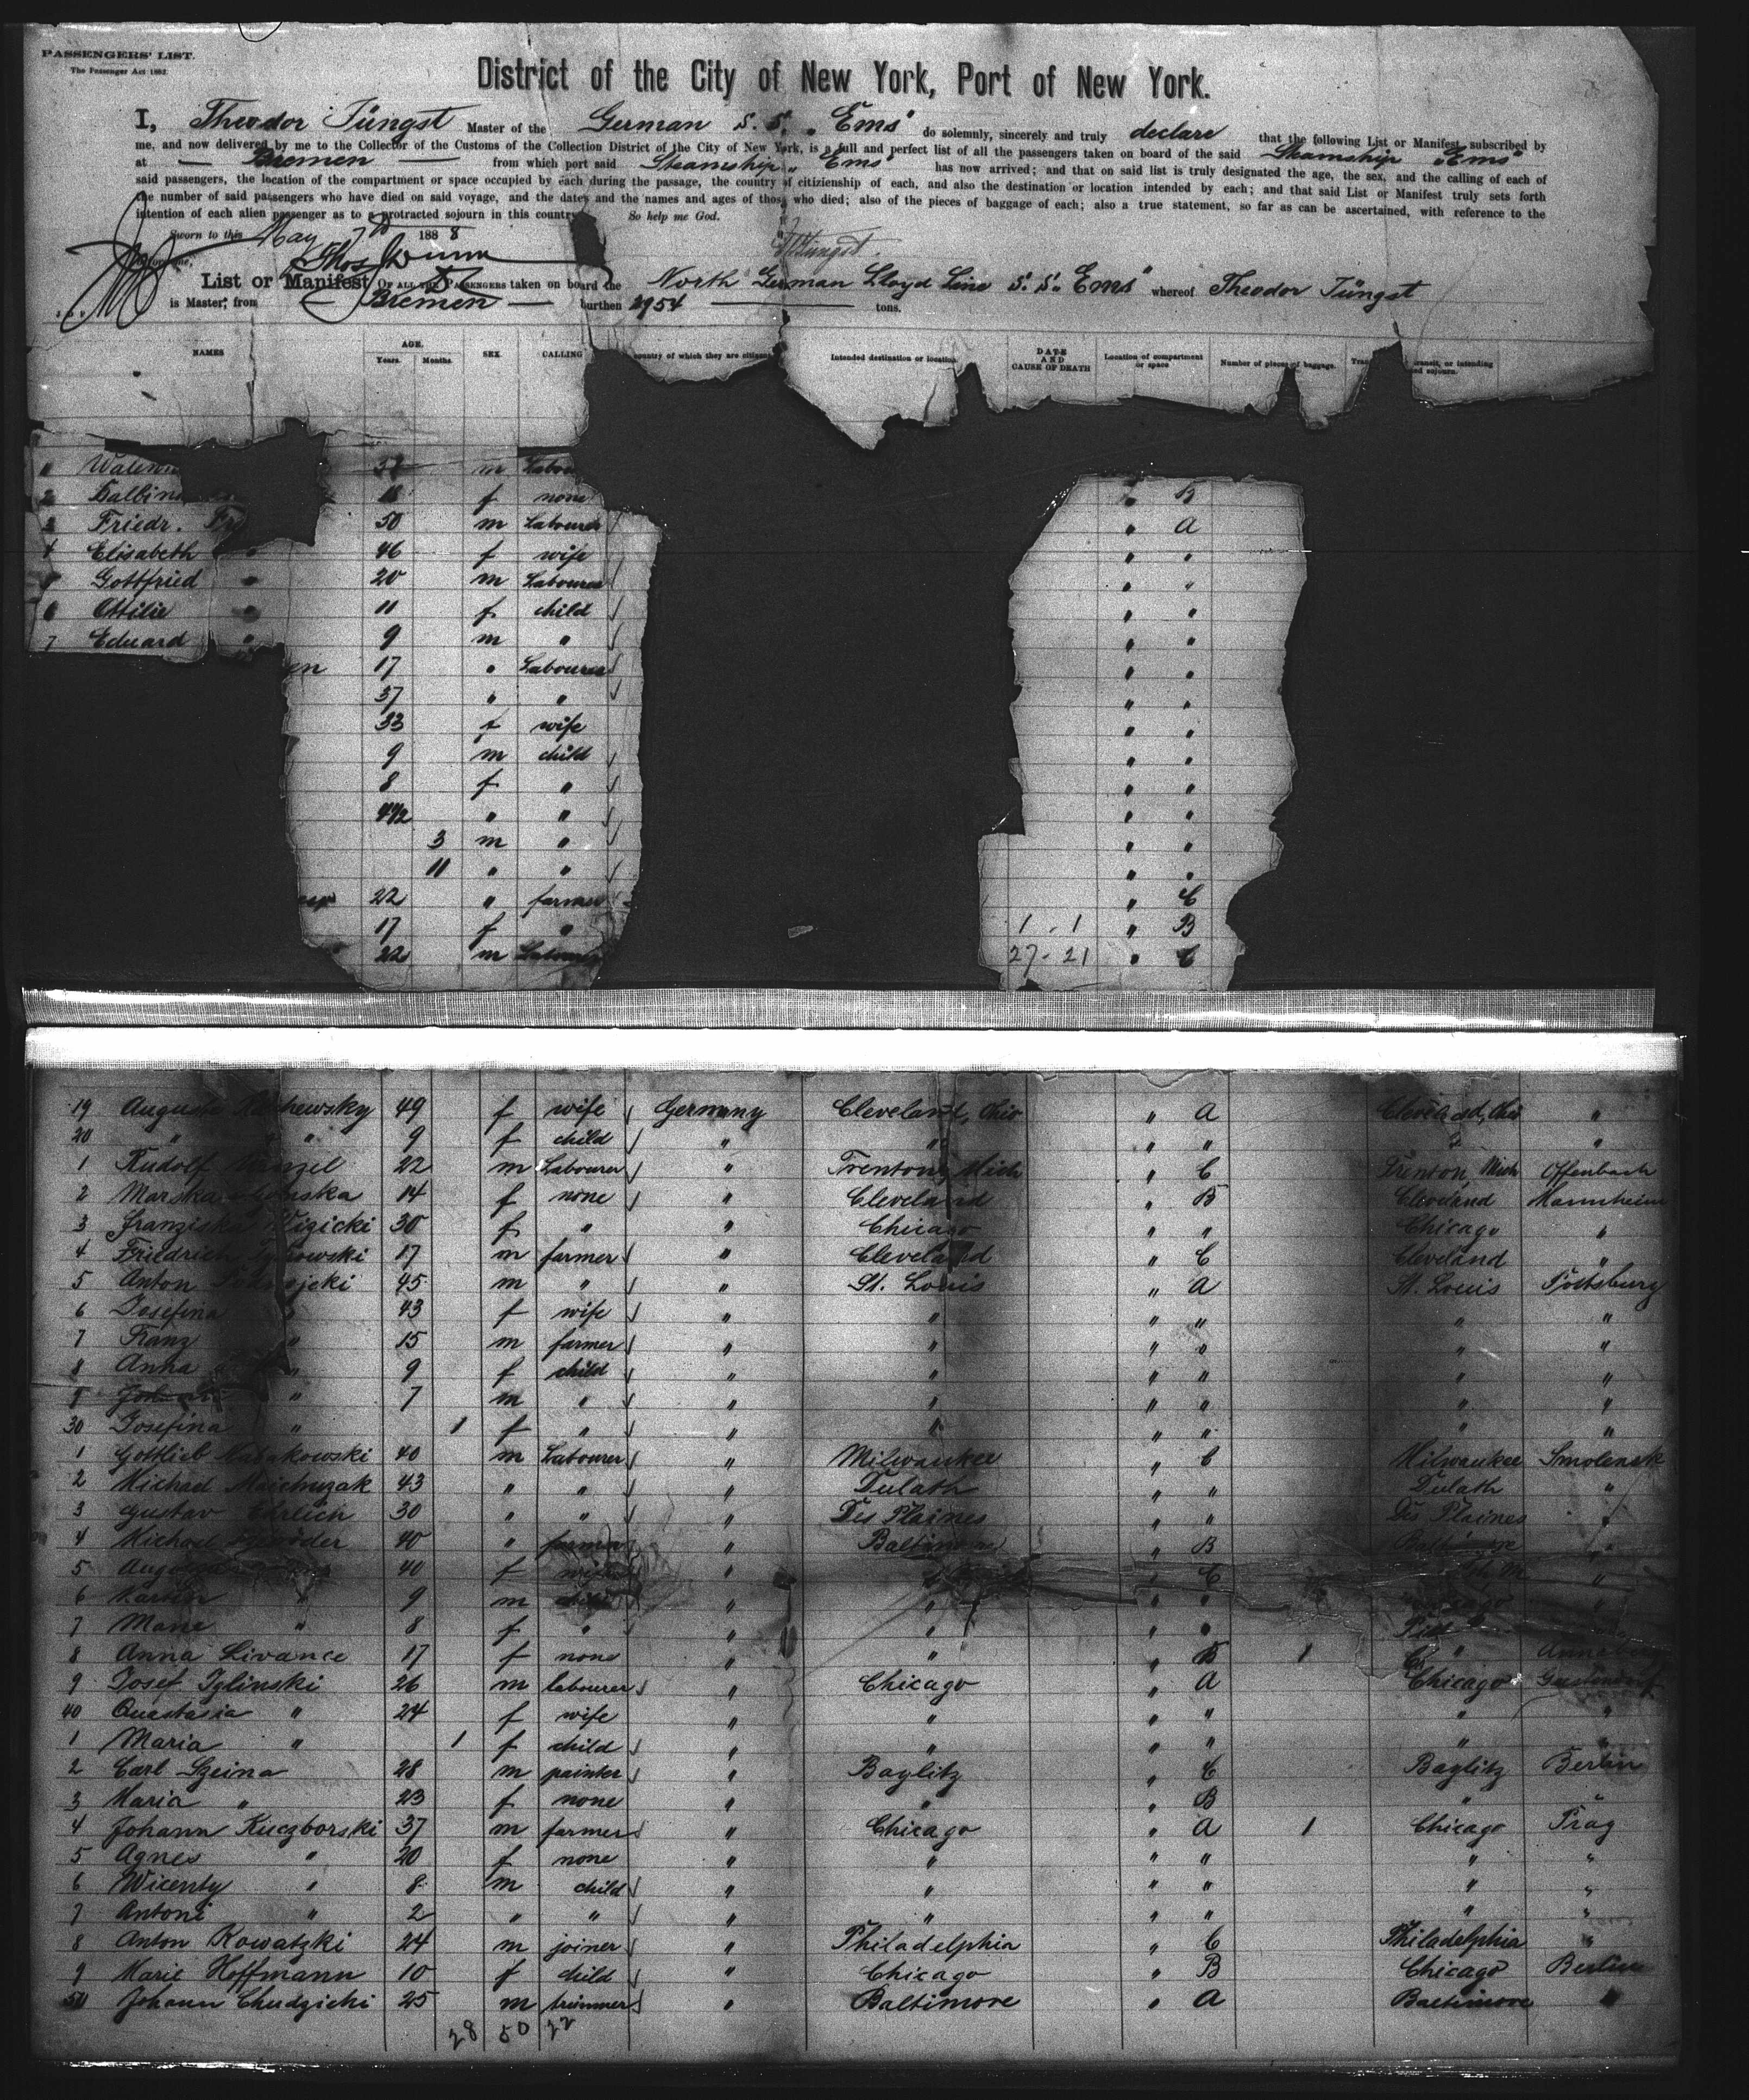 PASSENGERS' LIST.
The Passenger Act 1882.
District of the City of New York, Port of New York.
I, Theodor Jüngst Master of the German S. S. „Ems" do solemnly, sincerely and truly declare that the following List or Manifest, subscribed by
me, and now delivered by me to the Collector of the Customs of the Collection District of the City of New York, is a full and perfect list of all the passengers taken on board of the said Steamship „Ems"
at — Bremen — from which port said Steamship „Ems" has now arrived; and that on said list is truly designated the age, the sex, and the calling of each of
said passengers, the location of the compartment or space occupied by each during the passage, the country of citizenship of each, and also the destination or location intended by each; and that said List or Manifest truly sets forth
the number of said passengers who have died on said voyage, and the dates and the names and ages of those who died; also of the pieces of baggage of each; also a true statement, so far as can be ascertained, with reference to the
intention of each alien passenger as to a protracted sojourn in this country. So help me God.
Sworn to this May 7th 1888
Jüngst.
Thos Dunn
List or Manifest OF ALL THE PASSENGERS taken on board the North German Lloyd Line S. S. „Ems" whereof Theodor Jüngst
is Master, from — Bremen — burthen 2954 — tons.
NAMES AGE. Years. Months. SEX CALLING country of which they are citizens Intended destination or location DATE AND CAUSE OF DEATH Location of compartment or space Number of pieces of baggage. transit, or intending sojourn.
m
2 Balbina 18 f none " B
3 Friedr. 50 m Labourer " A
4 Elisabeth " 46 f wife " "
5 Gottfried " 20 m Labourer " "
6 Ottilie " 11 f child " "
7 Eduard " 9 m " " "
en 17 " Labourer " "
37 " " " "
33 f wife " "
9 m child " "
8 f " " "
4 1/2 " " " "
3 m " " "
11 " " " "
22 " farmer " C
17 f " 1 . 1 " B
22 m Labourer 27-21 " C
19 49 f wife Germany Cleveland, Ohio " A Cleveland, Ohio "
20 " " 9 f child " " " " " "
1 Rudolf 22 m Labourer " Trenton, Mich " C Trenton, Mich Offenbach
2 14 f none " Cleveland " B Cleveland Mannheim
3 Franziska 30 f " " Chicago " " Chicago "
4 Friedrich 17 m farmer " Cleveland " C Cleveland "
5 Anton 45 m " " St. Louis " A St. Louis
6 Josefina " 43 f wife " " " " " "
7 Franz " 15 m farmer " " " " " "
8 Anna " 9 f child " " " " " "
9 " 7 m " " " " " " "
30 Josefina " 1 f " " " " " " "
1 Gottlieb 40 m Labourer " Milwaukee " C Milwaukee Smolensk
2 Michael 43 " " " Dulath " " Dulath "
3 Gustav Ehrlich 30 " " " Des Plaines " " Des Plaines "
4 Michael 40 " farmer " Baltimore " B Baltimore "
5 40 f wife " " " C "
6 Martin " 9 m child " " " " "
7 Marie " 8 f " " " " "
8 Anna Livance 17 f none " " " B 1 "
9 Josef Iglinski 26 m labourer " Chicago " A Chicago
40 Anastasia " 24 f wife " " " " " "
1 Maria " 1 f child " " " " " "
2 Carl Szeina 28 m painter " Baglitz " C Baglitz Berlin
3 Maria " 23 f none " " " B " "
4 Johann Kuczborski 37 m farmer " Chicago " A 1 Chicago Prag
5 Agnes " 20 f none " " " " " "
6 Wicenty " 8 m child " " " " " "
7 Antoni " 2 " " " " " " " "
8 Anton Kowatzki 24 m joiner " Philadelphia " C Philadelphia "
9 Marie Hoffmann 10 f child " Chicago " B Chicago Berlin
50 Johann Chudzicki 25 m trimmer " Baltimore " A Baltimore "
28 50 22